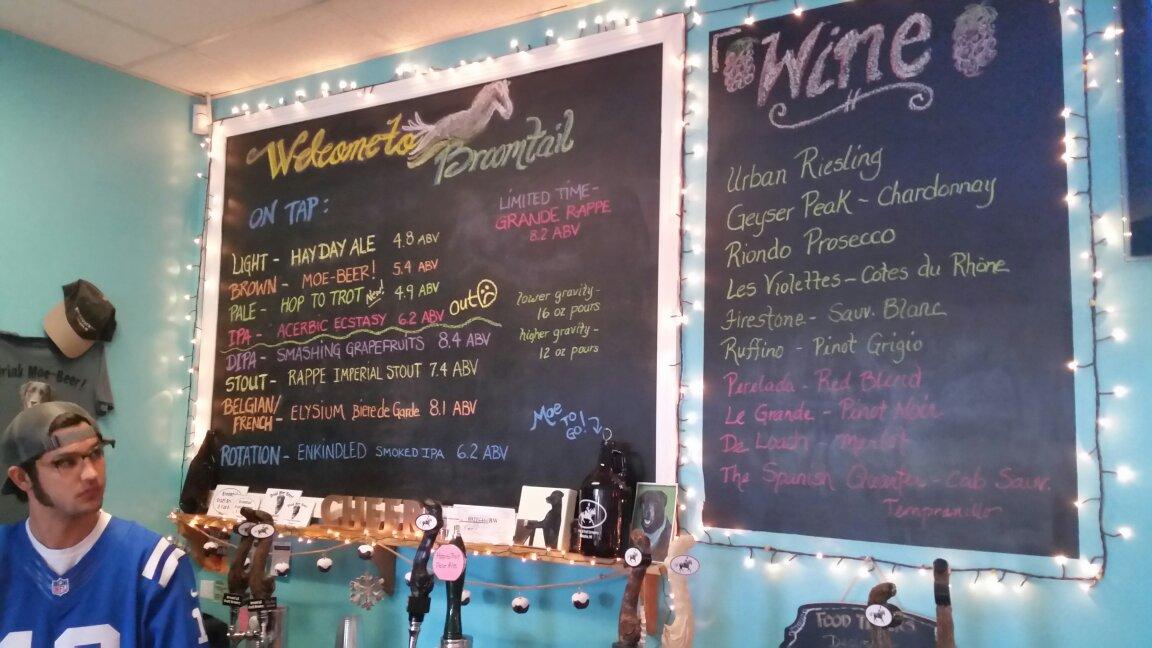 Welcome to Broomtail
ON TAP:
LIGHT - HAYDAY ALE 4.8 ABV
BROWN - MOE-BEER! 5.4 ABV
PALE - HOP TO TROT New! 4.9 ABV
IPA - ACERBIC ECSTASY 6.2 ABV out
DIPA - SMASHING GRAPEFRUITS 8.4 ABV
STOUT - RAPPE IMPERIAL STOUT 7.4 ABV
BELGIAN/
FRENCH - ELYSIUM Biere de Garde 8.1 ABV
ROTATION - ENKINDLED SMOKED IPA 6.2 ABV
LIMITED TIME -
GRANDE RAPPE
8.2 ABV
lower gravity -
16 oz pours
higher gravity -
12 oz pours
Moe TO GO!
Wine
Urban Riesling
Geyser Peak - Chardonnay
Riondo Prosecco
Les Violettes - Cotes du Rhône
Firestone - Sauv. Blanc
Ruffino - Pinot Grigio
Perelada - Red Blend
Le Grande - Pinot Noir
De Loach - Merlot
The Spanish Quarter - Cab Sauv.
Tempranillo
Drink Moe-Beer!
CHEERS
FOOD